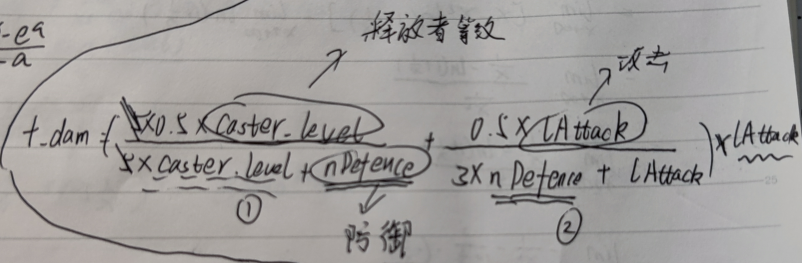 -ea
-a
释放者等效
攻击
t_dam = ( 5×0.5×Caster_level / 5×caster_level + nDefence + 0.5×lAttack / 3×nDefence + lAttack ) × lAttack
① ②
防御